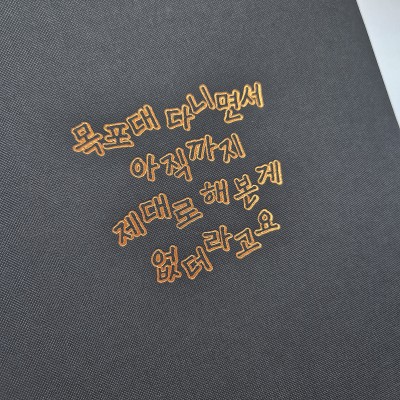 목포대 다니면서
아직까지
제대로 해본게
없더라고요